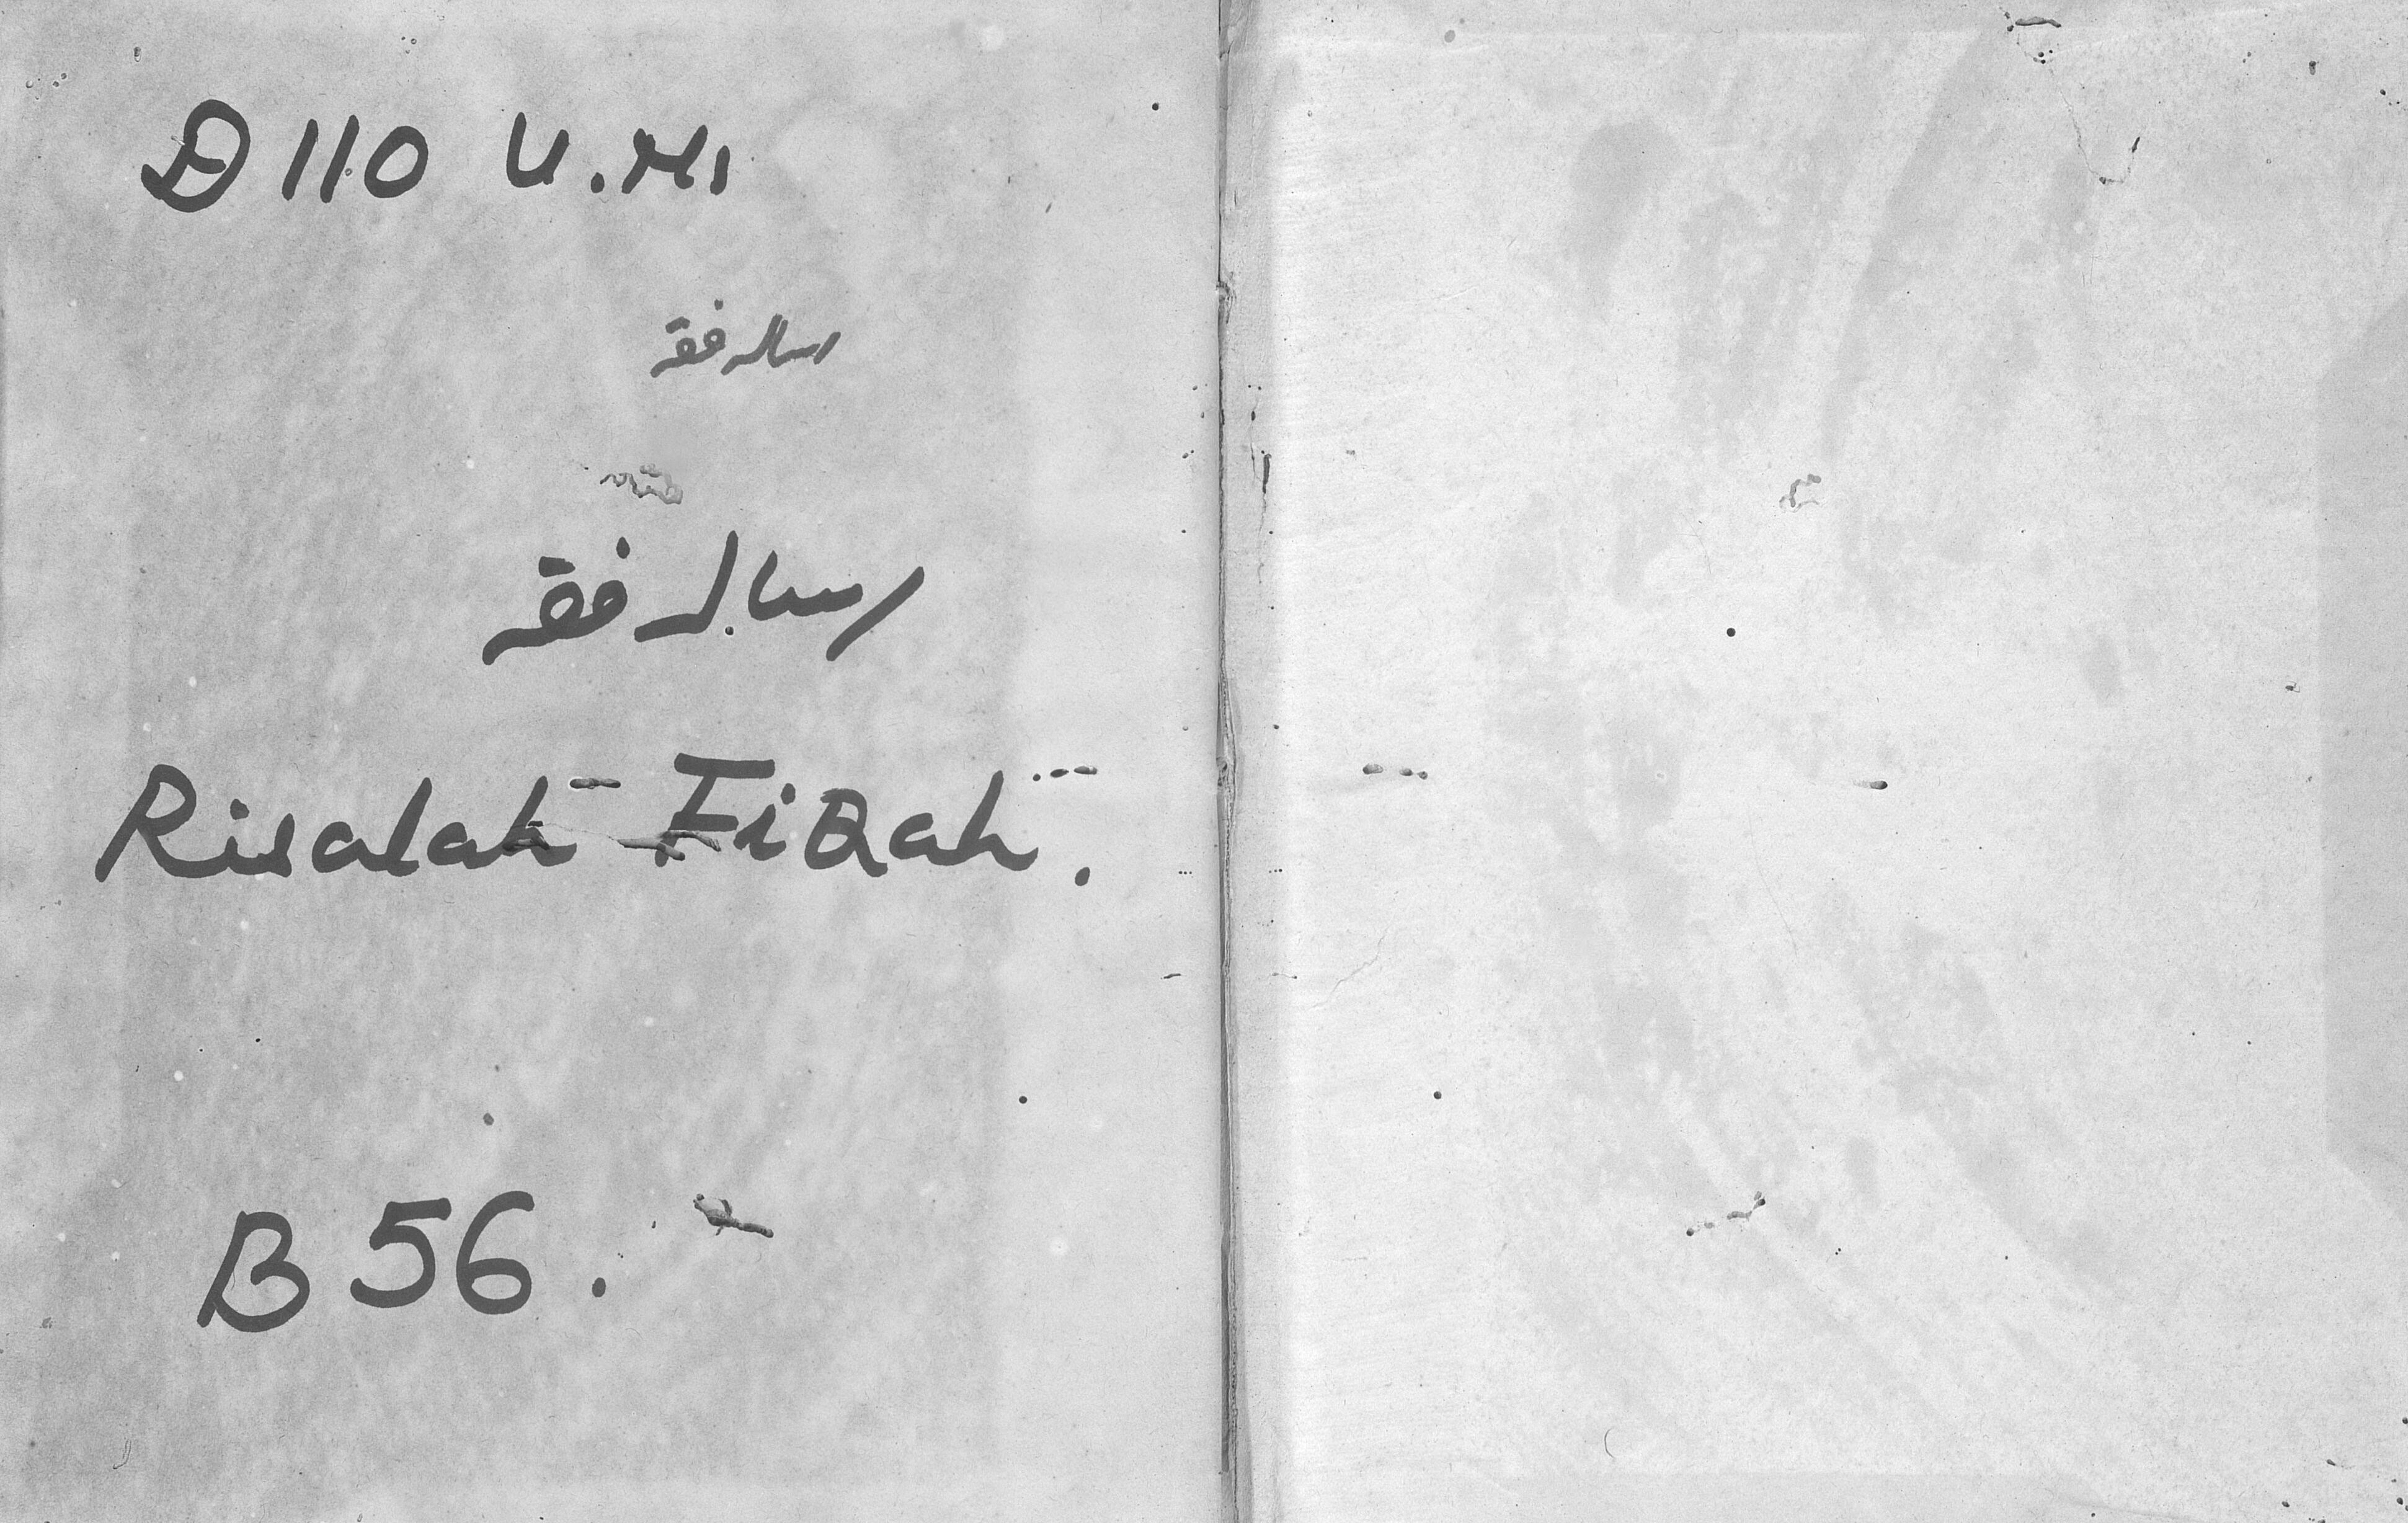 D 110 U.M.
رساله فقه
رساله فقه
Risalah Fiqah.
B 56.